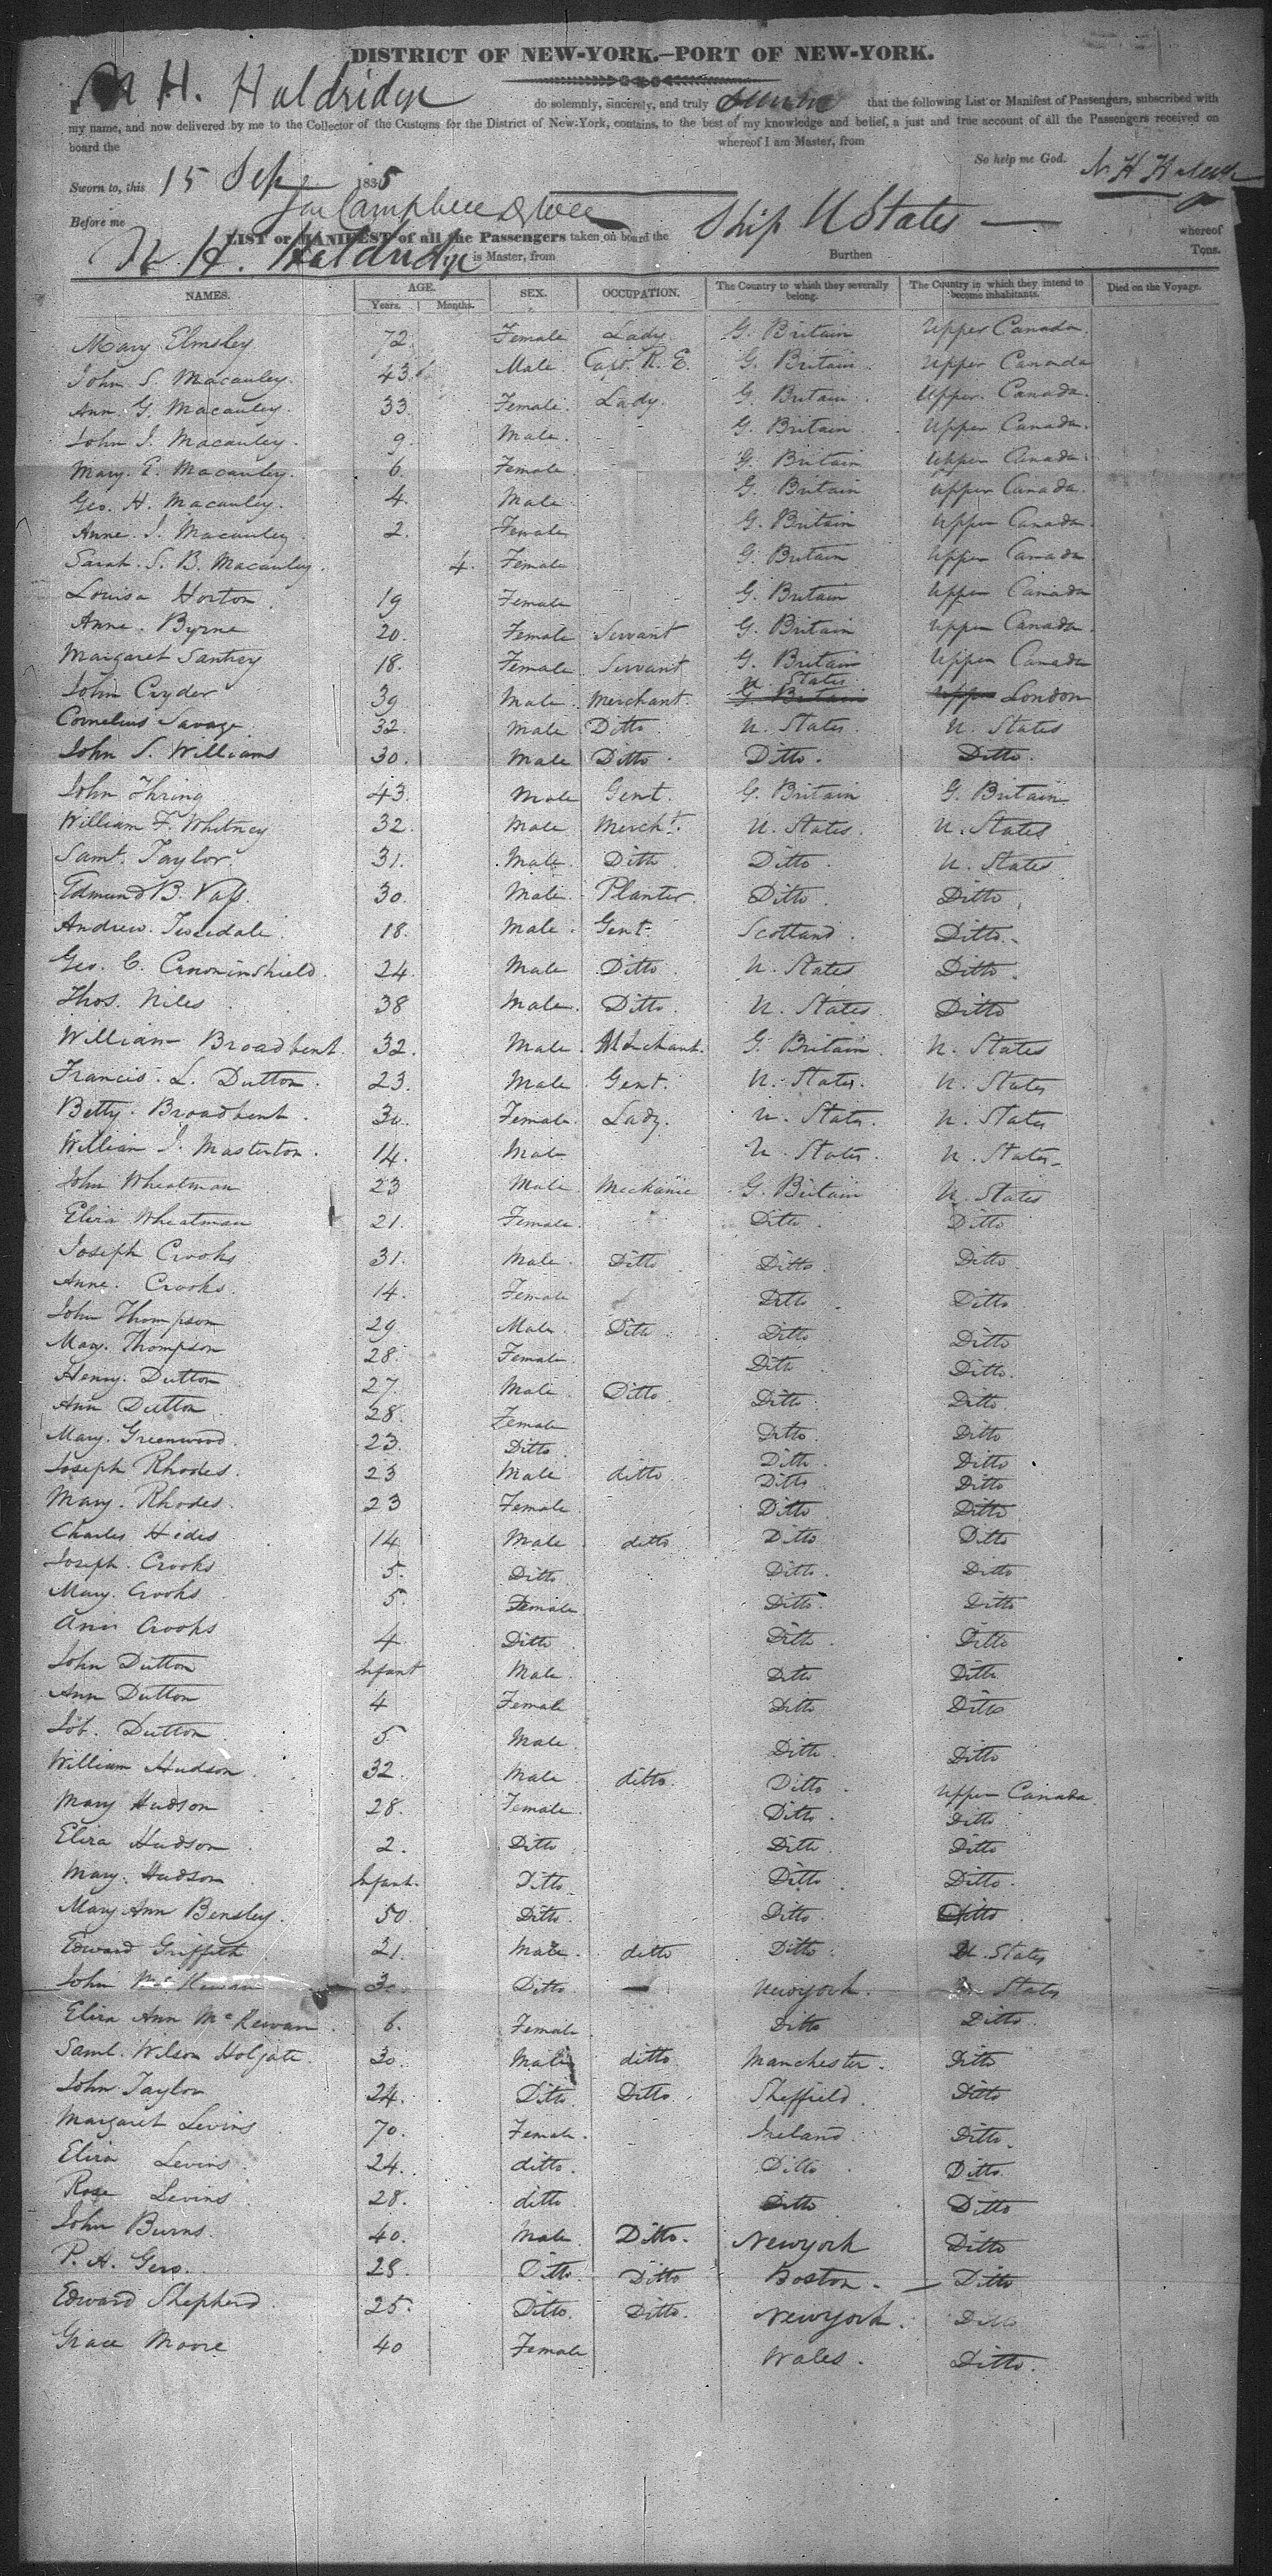 DISTRICT OF NEW-YORK.—PORT OF NEW-YORK.
N H. Holdridge do solemnly, sincerely, and truly swear that the following List or Manifest of Passengers, subscribed with
my name, and now delivered by me to the Collector of the Customs for the District of New-York, contains, to the best of my knowledge and belief, a just and true account of all the Passengers received on
board the whereof I am Master, from
So help me God.
Sworn to, this 15 Sep 1835 N H Holdridge
Before me
LIST or MANIFEST of all the Passengers taken on board the Ship UStates whereof
N. H. Holdridge is Master, from Burthen Tons.
NAMES. AGE. Years. Months. SEX. OCCUPATION. The Country to which they severally belong. The Country in which they intend to become inhabitants. Died on the Voyage.
Mary Elmsley 72. Female Lady G. Britain Upper Canada.
John S. Macauley. 43 Male Capt. R. E. G. Britain Upper Canada
Ann G. Macauley. 33 Female. Lady. G. Britain Upper Canada.
John J. Macauley. 9. Male. G. Britain Upper Canada.
Mary. E. Macauley. 6. Female G. Britain Upper Canada.
Geo. H. Macauley. 4. Male G. Britain Upper Canada.
Anne. J. Macauley 2. Female G. Britain Upper Canada.
Sarah. S. B. Macauley. 4. Female G. Britain Upper Canada
Louisa Horton 19 Female G. Britain Upper Canada
Anne. Byrne 20. Female Servant G. Britain Upper Canada.
Margaret Santrey 18. Female Servant G. Britain Upper Canada
John Cryder 39 Male Merchant. U. States G. Britain Upper London
Cornelius Savage. 32. Male Ditto U. States. U. States
John S. Williams 30. Male Ditto Ditto. Ditto.
John Thring 43. Male Gent. G. Britain G. Britain
William F. Whitney 32. Male Mercht. U. States. U. States
Saml. Taylor. 31. Male. Ditto Ditto. U. States
Edmund B. Vass. 30. Male. Planter. Ditto. Ditto
Andrew. Tweedale. 18. Male. Gent. Scotland. Ditto.
Geo. C. Crowninshield. 24. Male Ditto. U. States Ditto.
Thos. Niles 38 Male. Ditto. U. States. Ditto
William Broadbent. 32. Male. Merchant. G. Britain. U. States
Francis. L. Dutton. 23. Male. Gent. U. States. U. States
Betty. Broadbent. 30. Female. Lady. U. States. U. States
William J. Masterton. 14. Male U. States. U. States
John Wheatman 23 Male. Mechanic G. Britain U. States
Eliza Wheatman 21. Female. Ditto. Ditto
Joseph Crooks 31. Male. Ditto Ditto. Ditto
Anne. Crooks. 14. Female Ditto Ditto
John Thompson 29. Male. Ditto Ditto Ditto
Mary. Thompson 28. Female. Ditto Ditto.
Henry. Dutton 27. Male. Ditto. Ditto. Ditto.
Ann Dutton 28. Female Ditto. Ditto
Mary. Greenwood. 23. Ditto. Ditto. Ditto
Joseph Rhodes. 23 Male ditto. Ditto Ditto
Mary. Rhodes. 23 Female. Ditto. Ditto
Charles Hides 14 Male ditto Ditto Ditto
Joseph. Crooks 5. Ditto Ditto. Ditto
Mary. Crooks 5. Female Ditto. Ditto
Ann Crooks 4 Ditto Ditto. Ditto
John Dutton Infant Male. Ditto Ditto
Ann Dutton 4 Female Ditto Ditto
Job. Dutton. 5 Male. Ditto. Ditto
William Hudson 32. Male ditto. Ditto. Upper Canada
Mary Hudson 28. Female. Ditto. Ditto
Eliza Hudson 2. Ditto Ditto Ditto
Mary. Hudson Infant. Ditto Ditto. Ditto.
Mary Ann Bensley. 50. Ditto. Ditto. Ditto
Edward Griffith 21. Male. ditto Ditto. U. States
John 30. Ditto. — Newyork. States
Eliza Ann McKewan. 6. Female Ditto Ditto
Saml. Wilson Holgate. 30. Male ditto Manchester. Ditto
John Taylor 24. Ditto Ditto. Sheffield. Ditto
Margaret Levins 70. Female. Ireland. Ditto.
Eliza Levins. 24. ditto. Ditto. Ditto.
Rose Levins 28. ditto. Ditto Ditto
John Burns. 40. Male. Ditto. Newyork Ditto
P. A. 28. Ditto Ditto Boston. Ditto
Edward Shepherd. 25. Ditto. Ditto. Newyork. Ditto
Grace Moore 40 Female Wales. Ditto.